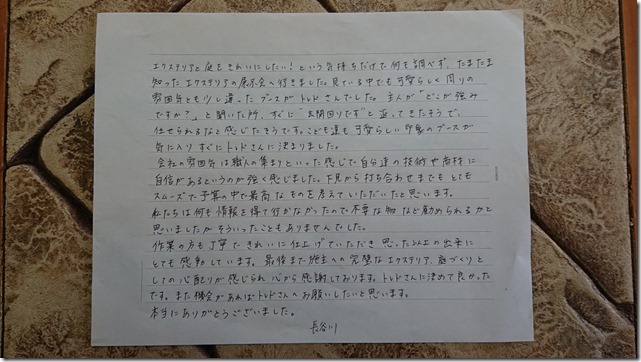 エクステリアと庭をきれいにしたい！という気持ちだけで何も調べず、たまたま
知ったエクステリアの展示会へ行きました。見ている中でも可愛らしく周りの
雰囲気とも少し違ったブースがトレドさんでした。主人が「どこが強み
ですか？」と聞いた所、すぐに"玄関回りです"と返ってきたそうで、
任せられるなと感じたそうです。こども達も可愛らしい印象のブースが
気に入りすぐにトレドさんに決まりました。
会社の雰囲気は職人の集まりといった感じで自分達の技術や商材に
自信があるというのが強く感じました。下見から打ち合わせまでもとても
スムーズで予算の中で最高なものを考えていただいたと思います。
私たちは何も情報を得て行かなかったので不要な物など勧められるかと
思いましたがそういったこともありませんでした。
作業の方も丁寧できれいに仕上げていただき思った以上の出来に
とても感動しています。最後まで施主への完璧なエクステリア、庭づくりと
しての心配りが感じられ心から感謝しております。トレドさんに決めて良かった
です。また機会があればトレドさんへお願いしたいと思います。
本当にありがとうございました。
長谷川